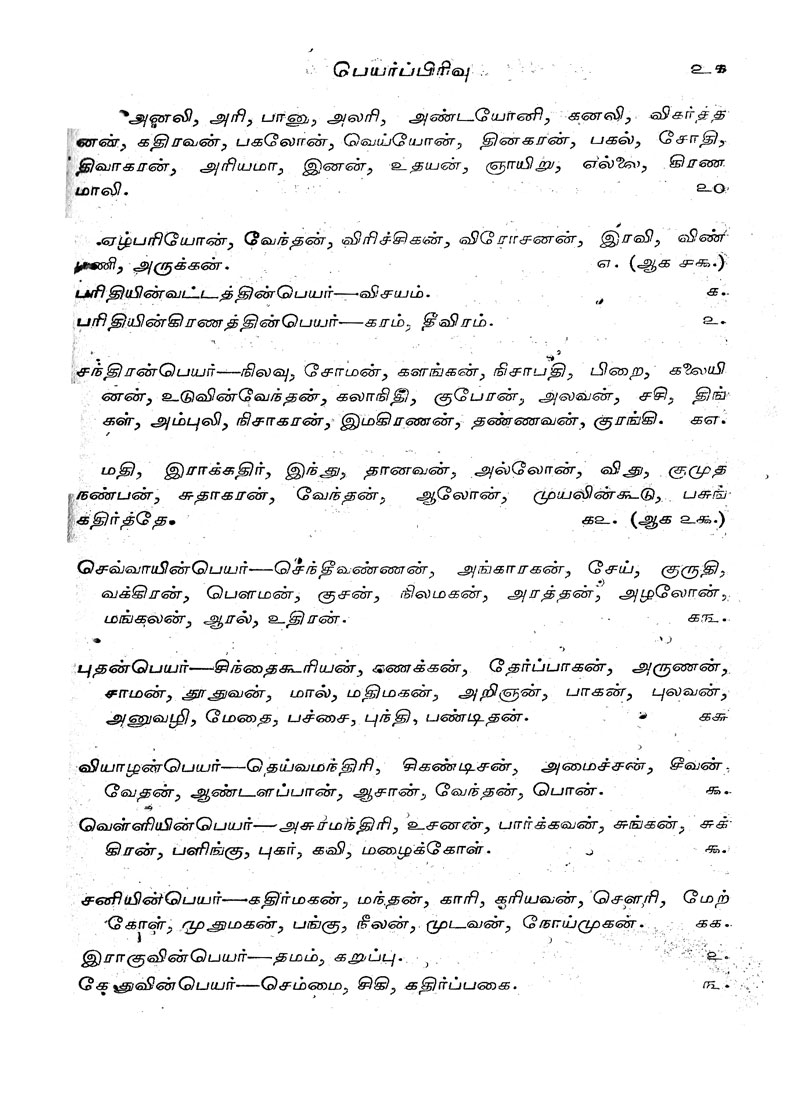 பெயர்ப்பிரிவு ௨௧
அனலி, அரி, பானு, அலரி, அண்டயோனி, கனலி, விகர்த்த
னன், கதிரவன், பகலோன், வெய்யோன், தினகரன், பகல், சோதி,
திவாகரன், அரியமா, இனன், உதயன், ஞாயிறு, எல்லை, கிரண
மாலி. ௨௦
ஏழ்பரியோன், வேந்தன், விரிச்சிகன், விரோசனன், இரவி, விண்
மணி, அருக்கன். ௭. (ஆக ௪௯.)
பரிதியின்வட்டத்தின்பெயர்—விசயம். ௧.
பரிதியின்கிரணத்தின்பெயர்—கரம், தீவிரம். ௨.
சந்திரன்பெயர்—நிலவு, சோமன், களங்கன், நிசாபதி, பிறை, கலையி
னன், உடுவின்வேந்தன், கலாநிதி, குபேரன், அலவன், சசி, திங்
கள், அம்புலி, நிசாகரன், இமகிரணன், தண்ணவன், குரங்கி. ௧௭.
மதி, இராக்கதிர், இந்து, தானவன், அல்லோன், விது, குமுத
நண்பன், சுதாகரன், வேந்தன், ஆலோன், முயலின்கூடு, பசுங்
கதிர்த்தே. ௧௨. (ஆக ௨௯.)
செவ்வாயின்பெயர்—செந்தீவண்ணன், அங்காரகன், சேய், குருதி,
வக்கிரன், பௌமன், குசன், நிலமகன், அரத்தன், அழலோன்,
மங்கலன், ஆரல், உதிரன். ௧௩.
புதன்பெயர்—சிந்தைகூரியன், கணக்கன், தேர்ப்பாகன், அருணன்,
சாமன், தூதுவன், மால், மதிமகன், அறிஞன், பாகன், புலவன்,
அனுவழி, மேதை, பச்சை, புந்தி, பண்டிதன். ௧௬
வியாழன்பெயர்—தெய்வமந்திரி, சிகண்டிசன், அமைச்சன், சீவன்.
வேதன், ஆண்டளப்பான், ஆசான், வேந்தன், பொன். ௯.
வெள்ளியின்பெயர்—அசுரமந்திரி, உசனன், பார்க்கவன், சுங்கன், சுக்
கிரன், பளிங்கு, புகர், கவி, மழைக்கோள். ௯.
சனியின்பெயர்—கதிர்மகன், மந்தன், காரி, கரியவன், சௌரி, மேற்
கோள், முதுமகன், பங்கு, நீலன், முடவன், நோய்முகன். ௧௧.
இராகுவின்பெயர்—தமம், கறுப்பு. ௨.
கேதுவின்பெயர்—செம்மை, சிகி, கதிர்ப்பகை. ௩.